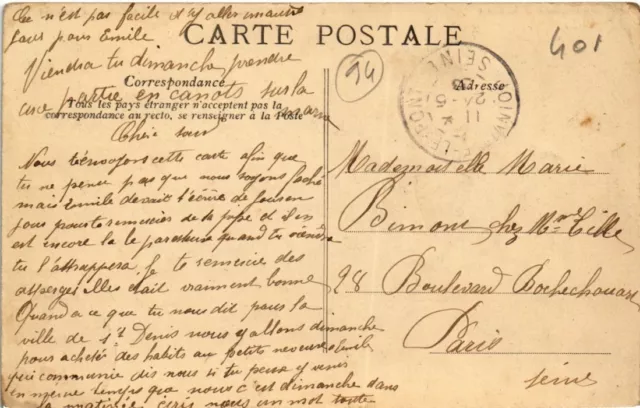 Ce n'est pas facile d'y aller maintenant
pour Emile
CARTE POSTALE
Viendra tu dimanche prendre
Correspondance
une partie en canots sur la
marne
Tous les pays étranger n'acceptent pas la
correspondance au recto, se renseigner à la Poste
Adresse
401
94
SEINE
Chère sœur
Nous t'envoyons cette carte afin que
tu ne pense pas que nous soyons faché
mais Emile devait t'écrire de
jous pour te remercier de la pipe et il s'en
est encore la le paresseux quand tu viendra
tu l'attrappera. Je te remercie des
asperges elles était vraiment bonne
Quand a ce que tu nous dit pour la
ville de St Denis nous y allons dimanche
pour acheté des habits au petits neveux Emile
qui communie dis nous si tu peux y venir
en même temps que nous c'est dimanche dans
la matinée écris nous un mot toute
Mademoiselle Marie
Bimont chez Mme Tille
98 Boulevard Rochechouart
Paris
Seine